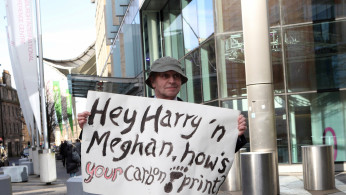 Hey Harry 'n
Meghan, how's
your carbon print!